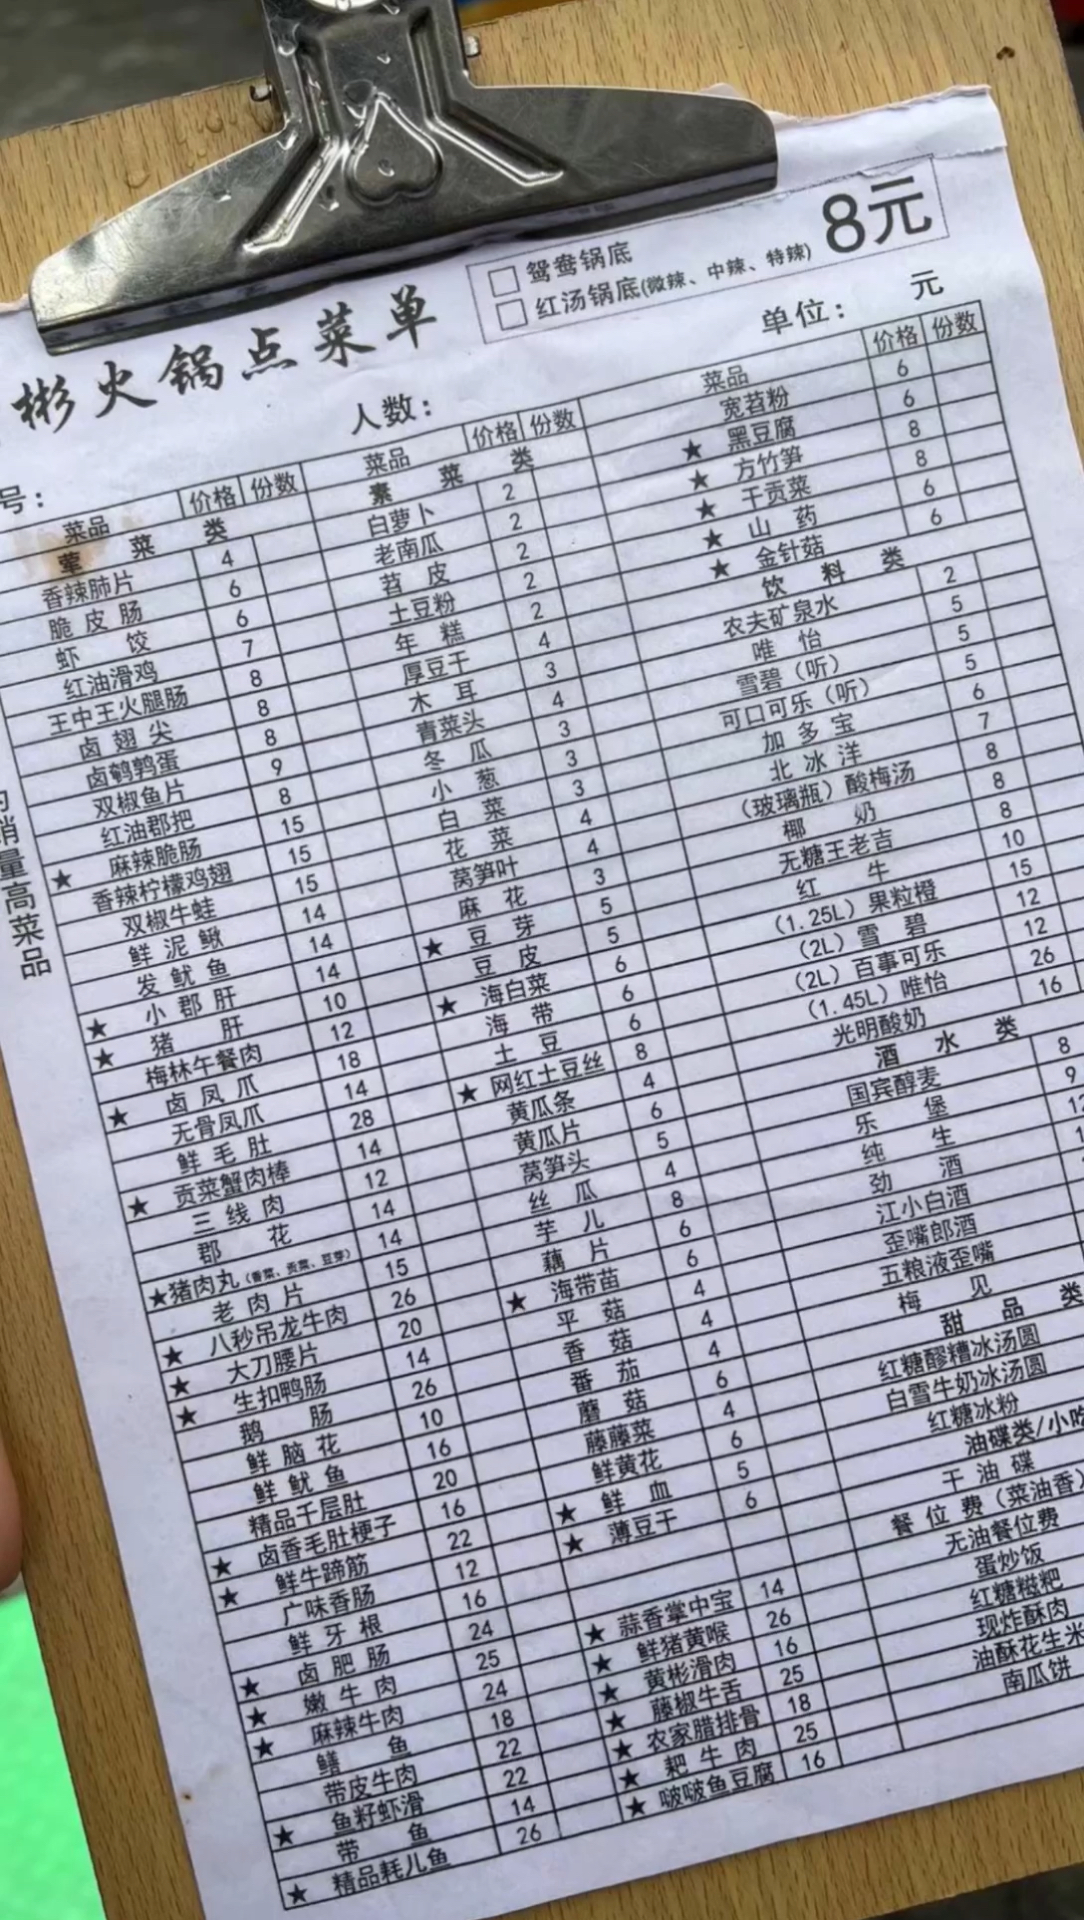 鸳鸯锅底
红汤锅底(微辣、中辣、特辣)
8元
彬火锅点菜单
号：
人数：
单位： 元
的销量高菜品
菜品 价格 份数
荤菜类
香辣肺片 4
脆皮肠 6
虾饺 6
红油滑鸡 7
王中王火腿肠 8
卤翅尖 8
卤鹌鹑蛋 8
双椒鱼片 9
红油郡把 8
★ 麻辣脆肠 15
香辣柠檬鸡翅 15
双椒牛蛙 15
鲜泥鳅 14
发鱿鱼 14
★ 小郡肝 14
★ 猪肝 10
梅林午餐肉 12
★ 卤凤爪 18
无骨凤爪 14
鲜毛肚 28
★ 贡菜蟹肉棒 14
三线肉 12
郡花 14
★猪肉丸(香菜、贡菜、豆芽) 14
老肉片 15
★ 八秒吊龙牛肉 26
★ 大刀腰片 20
★ 生扣鸭肠 14
鹅肠 26
鲜脑花 10
鲜鱿鱼 16
精品千层肚 20
★ 卤香毛肚梗子 16
★ 鲜牛蹄筋 22
广味香肠 12
鲜牙根 16
★ 卤肥肠 24
★ 嫩牛肉 25
★ 麻辣牛肉 24
鳝鱼 18
带皮牛肉 22
★ 鱼籽虾滑 22
带鱼 14
★ 精品耗儿鱼 26
菜品 价格 份数
素菜类
白萝卜 2
老南瓜 2
苕皮 2
土豆粉 2
年糕 2
厚豆干 4
木耳 3
青菜头 4
冬瓜 3
小葱 3
白菜 3
花菜 4
莴笋叶 4
麻花 3
★ 豆芽 5
豆皮 5
★ 海白菜 6
海带 6
土豆 6
★ 网红土豆丝 8
黄瓜条 4
黄瓜片 6
莴笋头 5
丝瓜 4
芋儿 8
藕片 6
★ 海带苗 6
平菇 4
香菇 4
番茄 4
蘑菇 6
藤藤菜 4
鲜黄花 6
★ 鲜血 5
★ 薄豆干 6
★ 蒜香掌中宝 14
★ 鲜猪黄喉 26
★ 黄彬滑肉 16
★ 藤椒牛舌 25
★ 农家腊排骨 18
★ 耙牛肉 25
★ 啵啵鱼豆腐 16
菜品 价格 份数
宽苕粉 6
★ 黑豆腐 6
★ 方竹笋 8
★ 干贡菜 8
★ 山药 6
★ 金针菇 6
饮料类
农夫矿泉水 2
唯怡 5
雪碧（听） 5
可口可乐（听） 5
加多宝 6
北冰洋 7
（玻璃瓶）酸梅汤 8
椰奶 8
无糖王老吉 8
红牛 10
（1.25L）果粒橙 15
（2L）雪碧 12
（2L）百事可乐 12
（1.45L）唯怡 26
光明酸奶 16
酒水类
国宾醇麦 8
乐堡 9
纯生
劲酒
江小白酒
歪嘴郎酒
五粮液歪嘴
梅见
甜品类
红糖醪糟冰汤圆
白雪牛奶冰汤圆
红糖冰粉
油碟类/小吃
干油碟
餐位费（菜油香）
无油餐位费
蛋炒饭
红糖糍粑
现炸酥肉
油酥花生米
南瓜饼